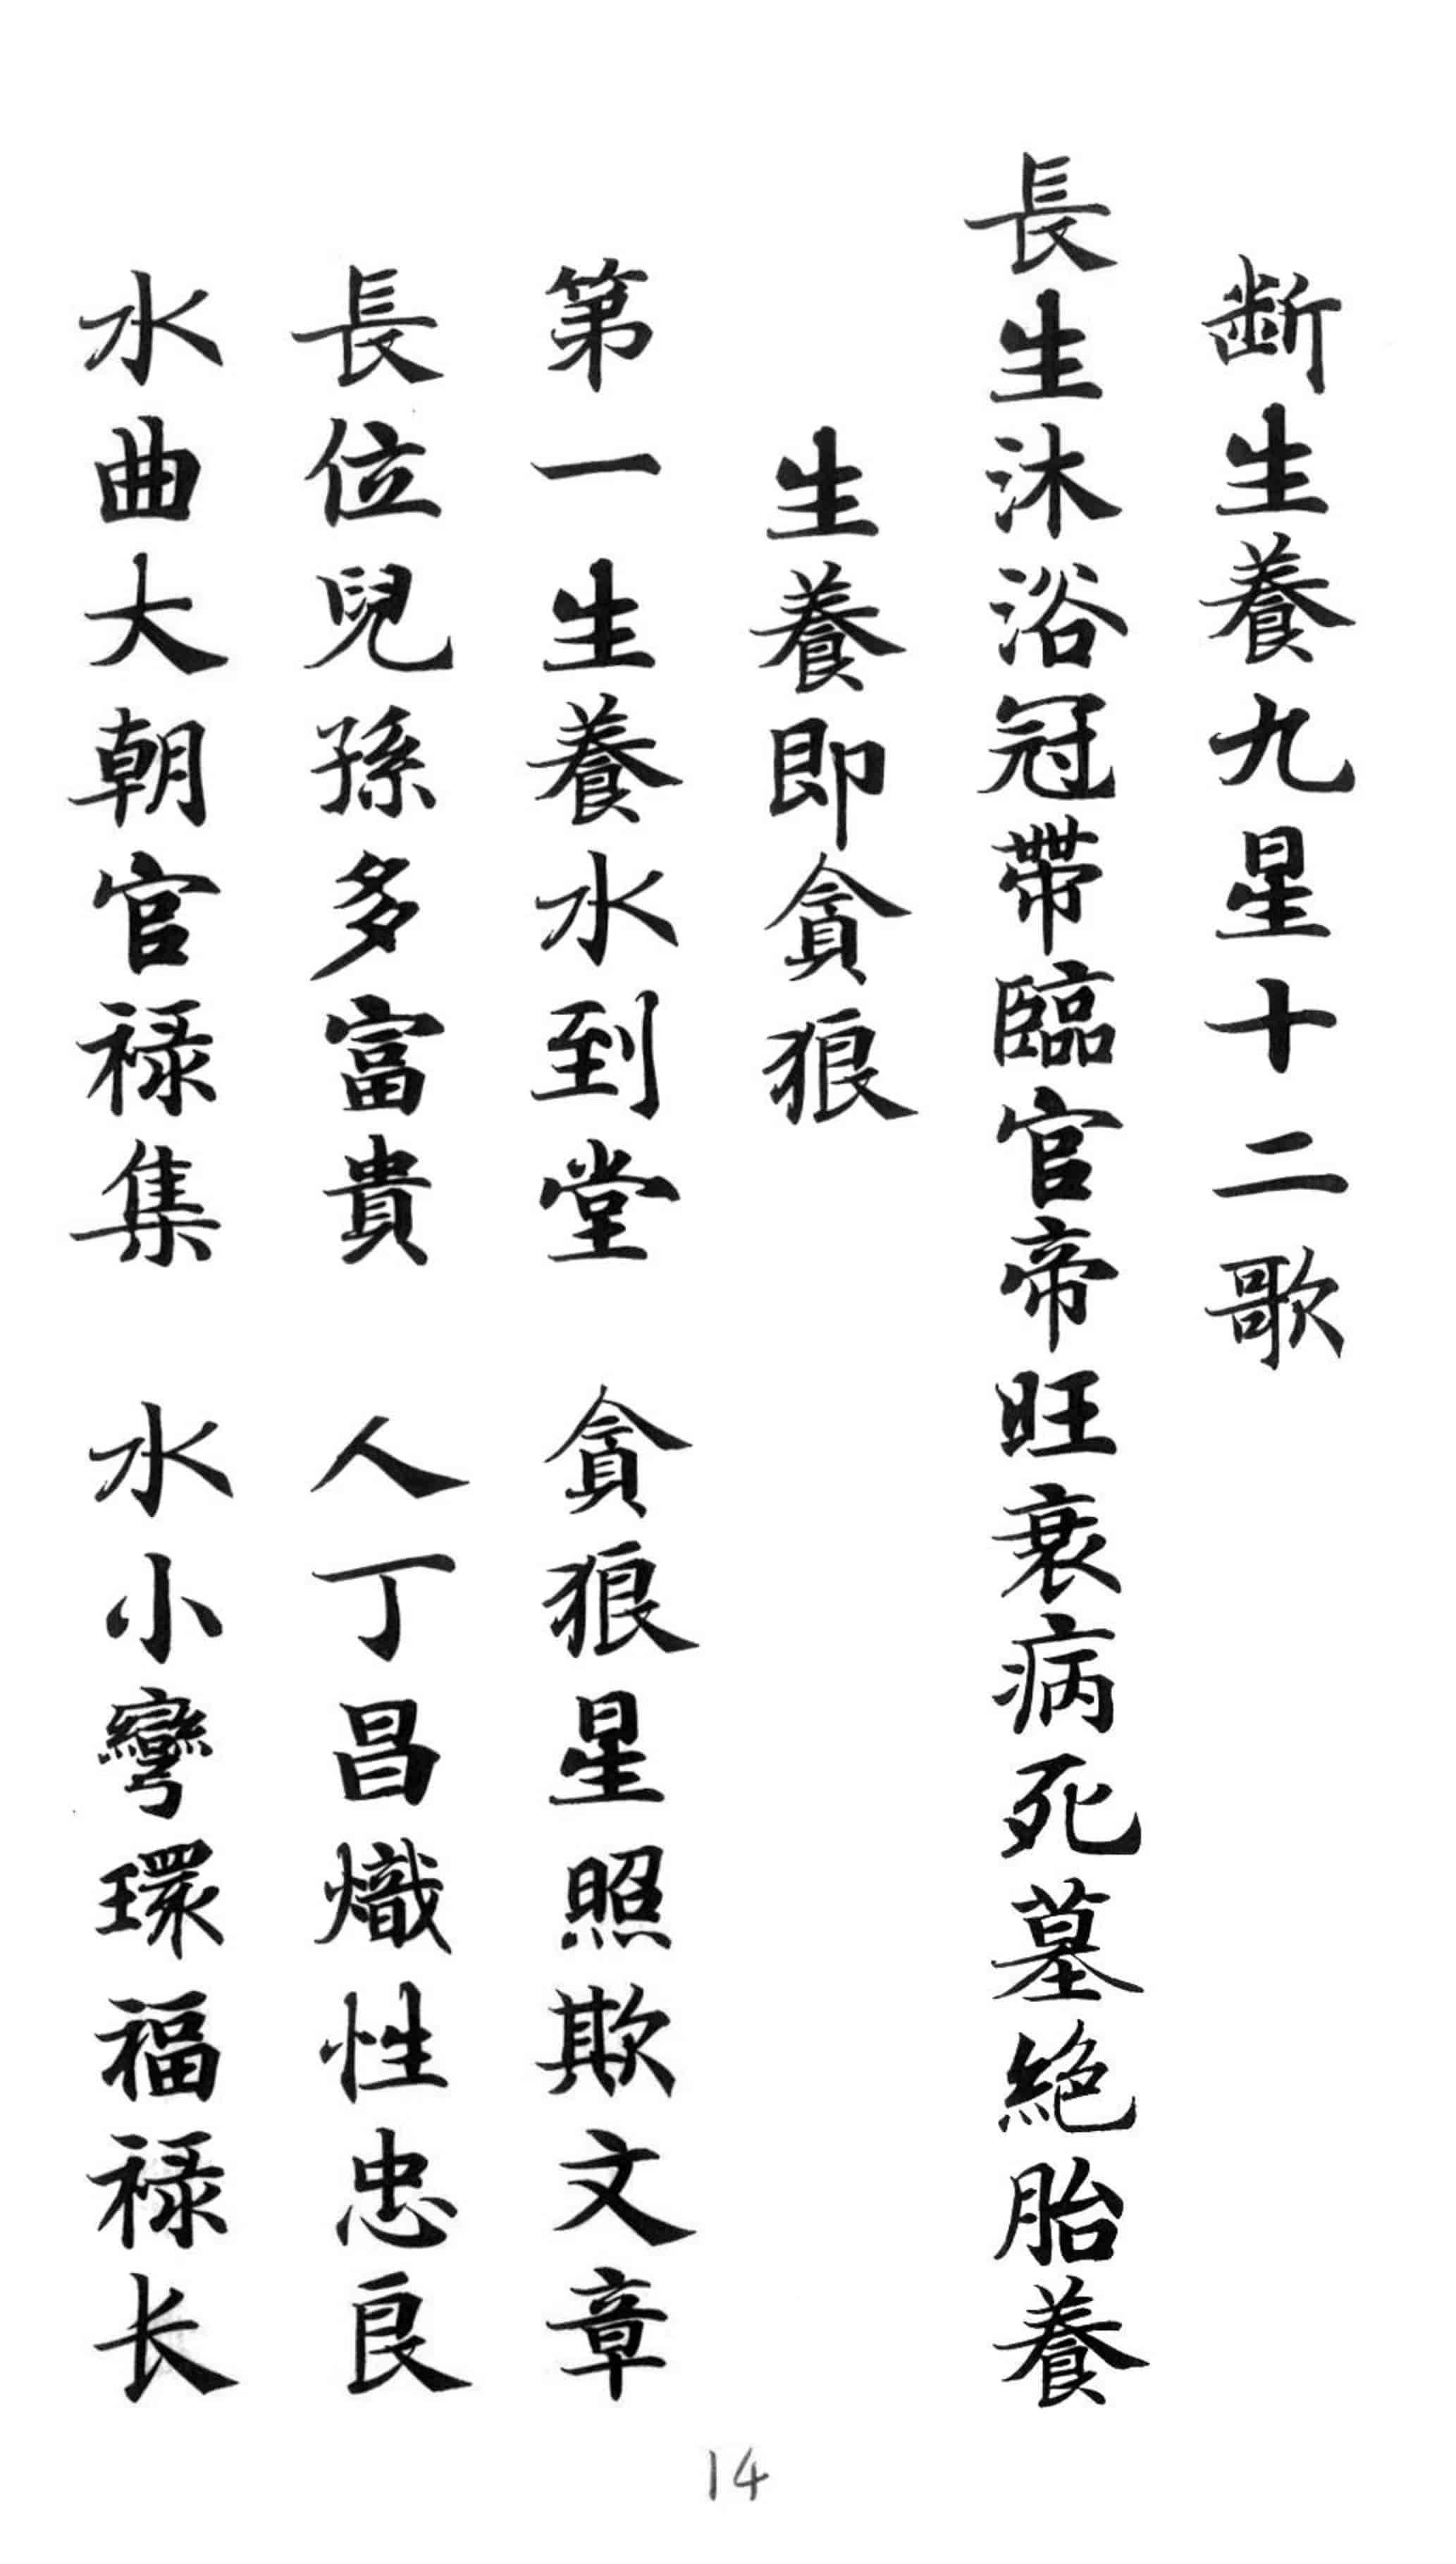 断生養九星十二歌
長生沐浴冠帶臨官帝旺衰病死墓絕胎養
生養即貪狼
第一生養水到堂 貪狼星照欺文章
長位兒孫多富貴 人丁昌熾性忠良
水曲大朝官禄集 水小彎環福禄长
14